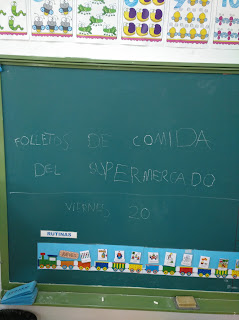 FOLLETOS DE COMIDA
DEL SUPERMERCADO
VIERNES 20
RUTINAS